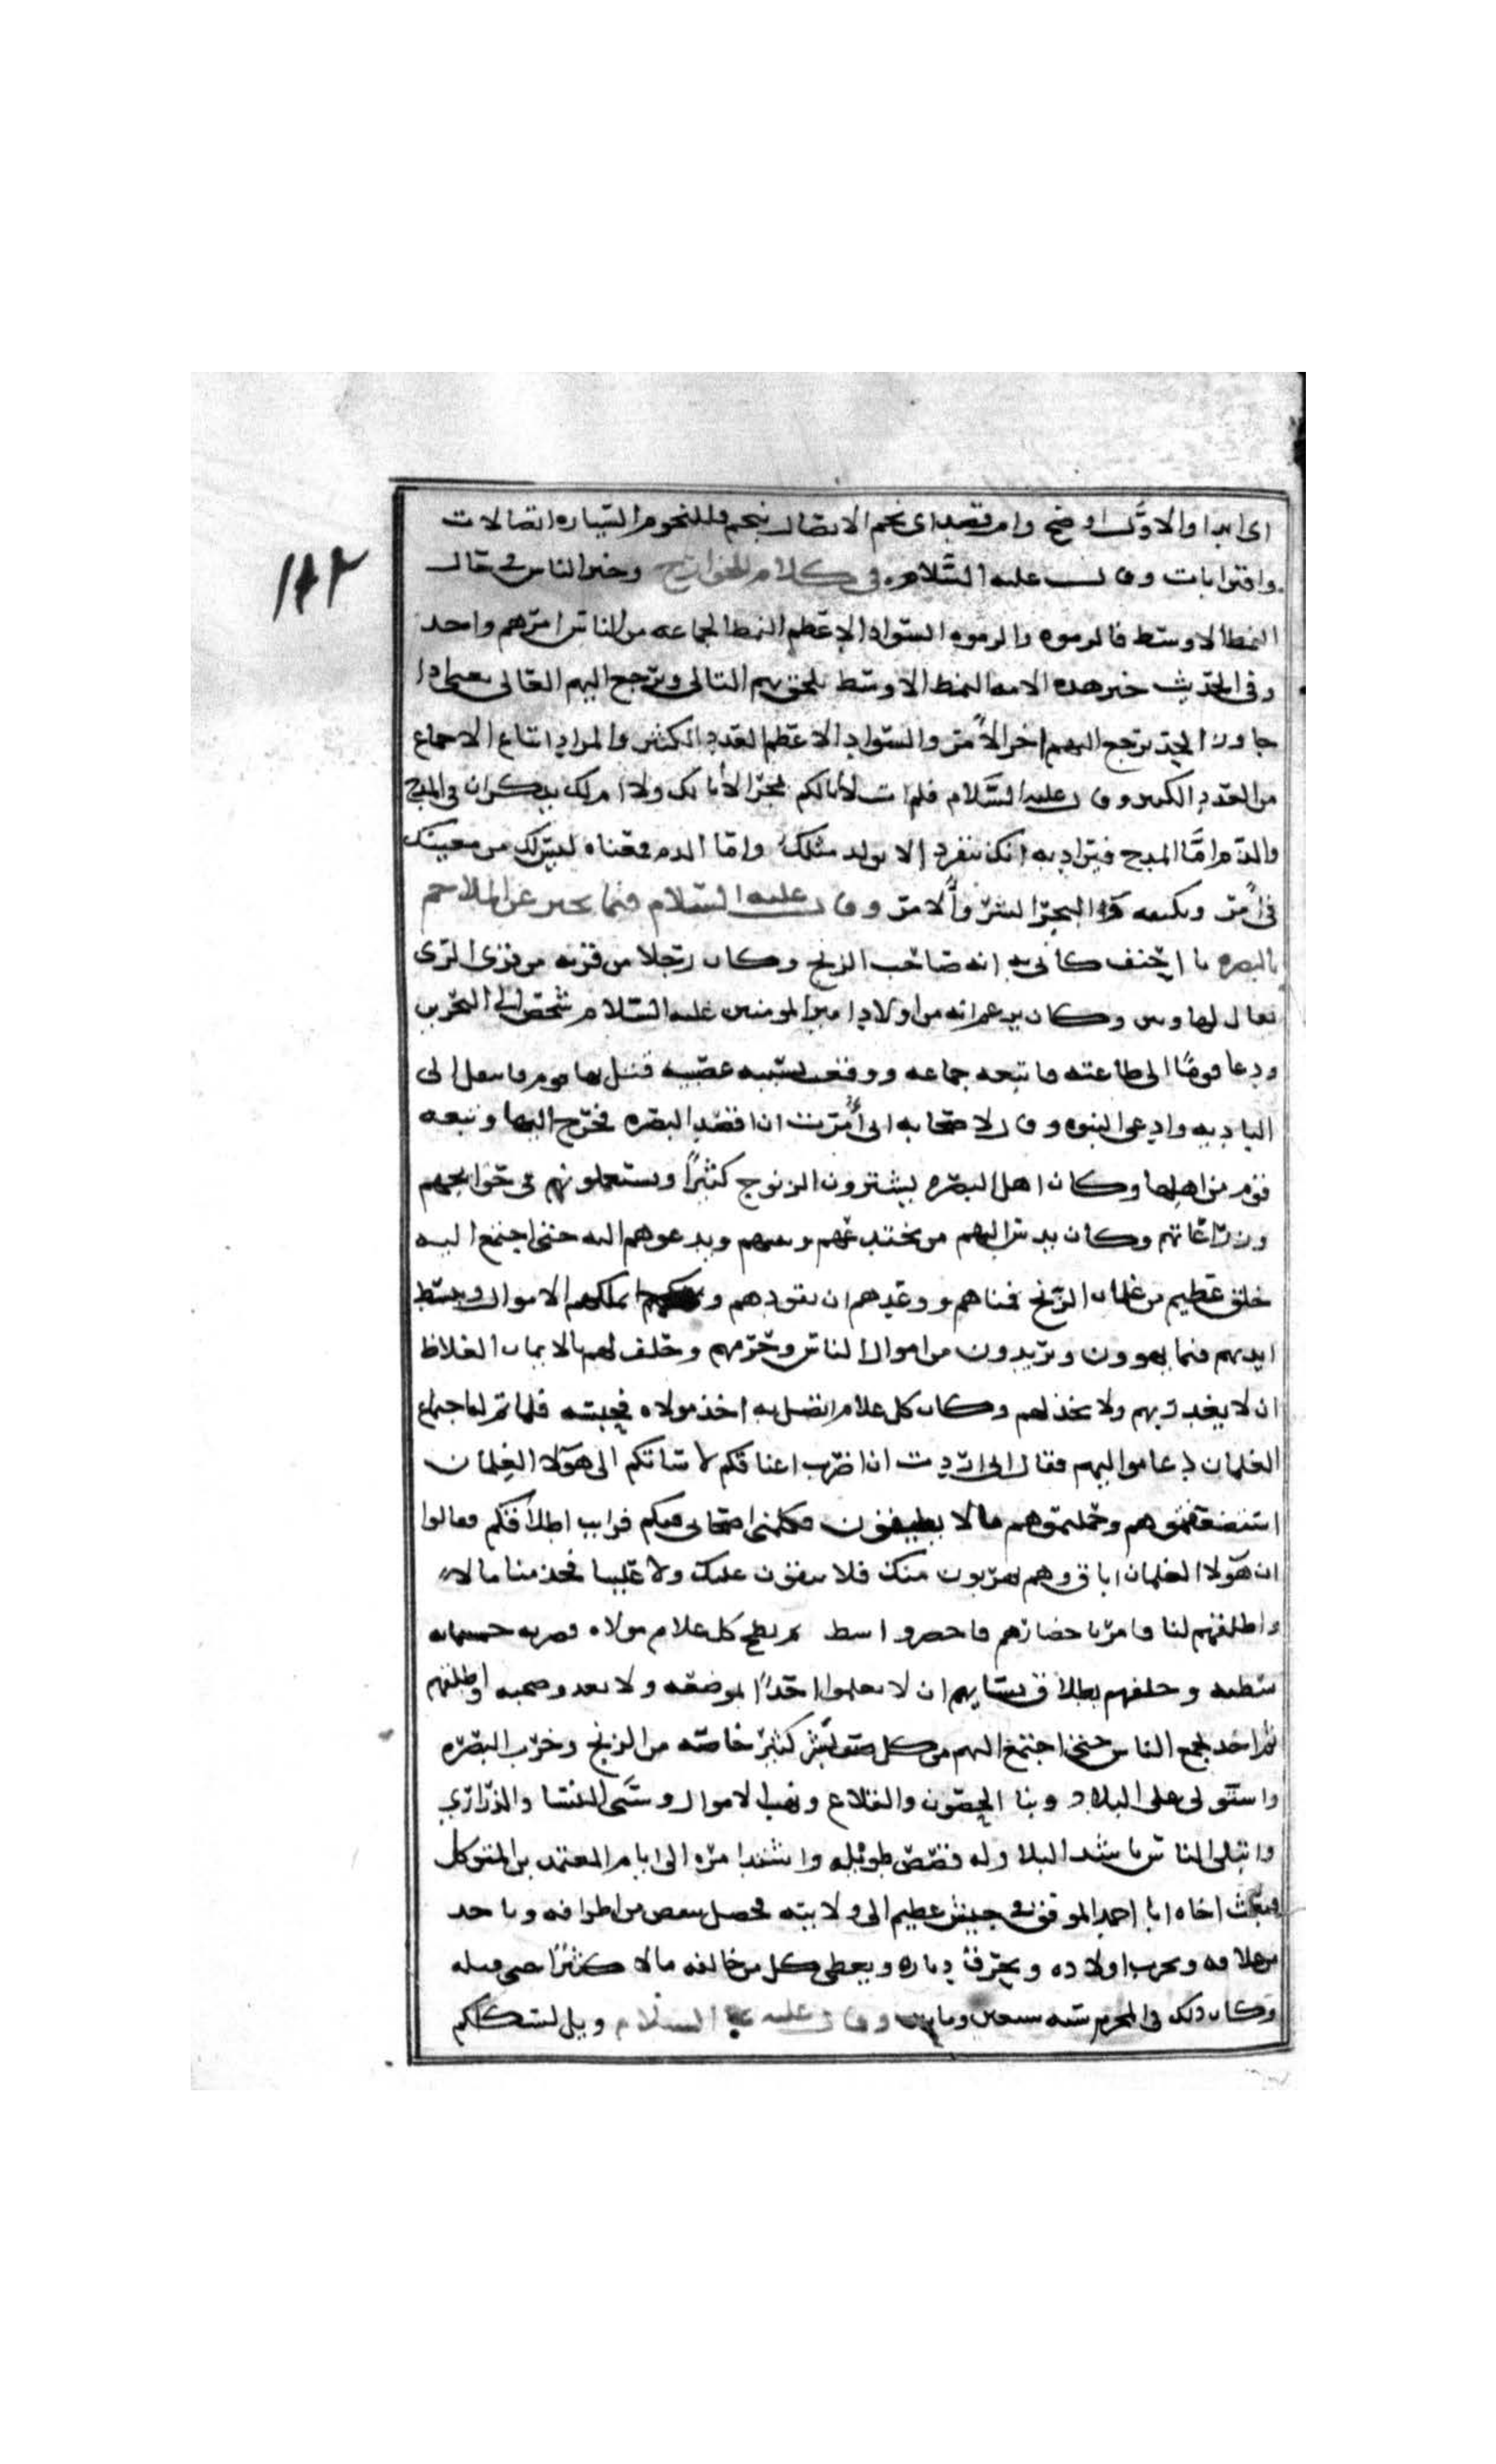 ١٨٢
اى ابدا والاوّل اوضح وامر قصد اى نجم الاتصال بنجم وللنجوم السياره اتصالات
واقترابات وقال عليه السّلام فى كلام للخوارج وخير الناس فى حالا
النمط الاوسط فالزموه والزموا السواد الاعظم النمط الجماعه من الناس امرهم واحد
وفى الحديث خير هذه الامه النمط الاوسط يلحق بهم التالى ويرجع اليهم الغالى يعنى اذا
جاوز الحد يرجع اليهم اخر الأمر والسواد الاعظم العدد الكثير والمراد اتباع الاجماع
من العدد الكثير وقال عليه السّلام فلم ات لا ابالكم بجرا لا ابا لك ولا ام لك يذكران فى المدح
والذم امّا المدح فيراد به انك منفرد لا يولد مثلك واما الذم فمعناه ليس لك من يعينك
فى أمر ويكنفه والبجر الشر والامر وقال عليه السّلام فيما يخبر عن الملاحم
بالبصره يا احنف كانى به انه صاحب الزنج وكان رجلا من قريه من قرى الرى
يقال لها وكان يزعم انه من اولاد امير المومنين عليه السّلام شخص الى البحرين
ودعا قومًا الى طاعته فاتبعه جماعه ووقعت بسببه عصبيه قتل بها قوم فانتقل الى
الباديه وادعى النبوه وقال لاصحابه انى أُمرت ان اقصد البصره فخرج اليها وتبعه
قوم من اهلها وكان اهل البصره يشترون الزنوج كثيرًا ويستعملونهم فى حوايجهم
وزراعاتهم وكان يدس اليهم من يخدعهم ويدعوهم اليه حتى اجتمع اليه
خلق عظيم من غلمان الزنج فمناهم ووعدهم ان يقودهم ويملكهم الاموال ويبسط
ايديهم فيما يهوون ويريدون من اموال الناس وحرمهم وحلف لهم بالايمان الغلاظ
ان لا يغدر بهم ولا يخذلهم وكان كل غلام اتصل به اخذ مولاه فحبسه فلما تم له اجتماع
الغلمان دعا مواليهم فقال انى اردت ان اضرب اعناقكم لاساتكم الى هؤلا الغلمان
استضعفتموهم وحملتموهم ما لا يطيقون فكلمنى اصحابى فيكم فرايت اطلاقكم فقالوا
ان هؤلا الغلمان اباق وهم يهربون منك فلا يبقون عليك ولا علينا فخذ منا مالا
واطلقهم لنا فامر باحضارهم فاحضروا ثم بطح كل غلام مولاه فضربه خمسمايه
شطبه وحلفهم بطلاق نسايهم ان لا يعلموا احدًا بموضعه ولا بعدد صحبه واطلقهم
ثم اخذ يجمع الناس حتى اجتمع اليهم من كل صوب بشر كثير خاصه من الزنج وخرب البصره
واستولى على البلاد وبنا الحصون والقلاع ونهب الاموال وسبى النسا والذرارى
وابتلى الناس باشد البلا وله قصص طويله واشتد امره الى ايام المعتمد بن المتوكل
فبعث اخاه ابا احمد الموفق فى جيش عظيم الى ولايته فحصل بعض من اطرافه وياخذ
من قلاعه ويخرب اولاده ويحرق دياره ويعطى كل من خالفه مالا كثيرًا حتى قتله
وكان ذلك فى المحرم سنه سبعين ومايتين وقال عليه السلام ويل لسكككم